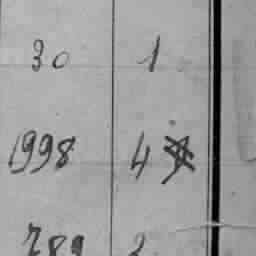 30 1
1998 4
789